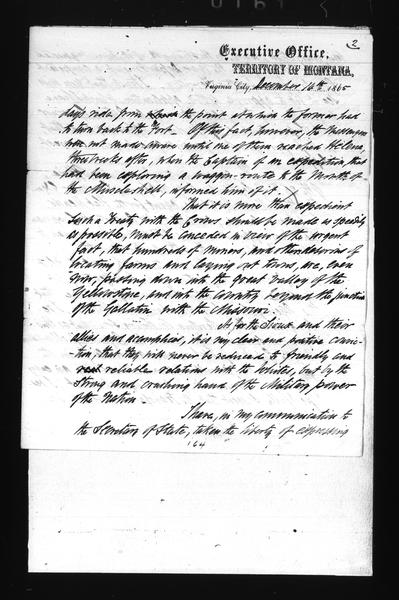 2
Executive Office,
TERRITORY OF MONTANA,
Virginia City, December 14th 1865
days ride from the point at which the former had
to turn back to the Fort. Of this fact, however, the Messengers
were not made aware until one of them reached Helena,
three weeks after, when the Captain of an expedition, that
had been exploring a waggon-route to the Mouth of
the Muscleshell, informed him of it.
That it is more than expedient
such a Treaty with the Crows should be made as speedily
as possible, must be conceded in view of the urgent
fact, that hundreds of miners, and others desirous of
locating farms and laying out towns, are, even
now, pushing down into the great valley of the
Yellowstone, and into the Country beyond the junction
of the Gallatin with the Missouri.
As for the Sioux and their
allies and accomplices, it is my clear and positive convic-
tion, that they will never be reduced to friendly and
reliable relations with the whites, but by the
strong and crushing hand of the Military power
of the Nation.
I have, in my communication to
the Secretary of State, taken the liberty of expressing
164